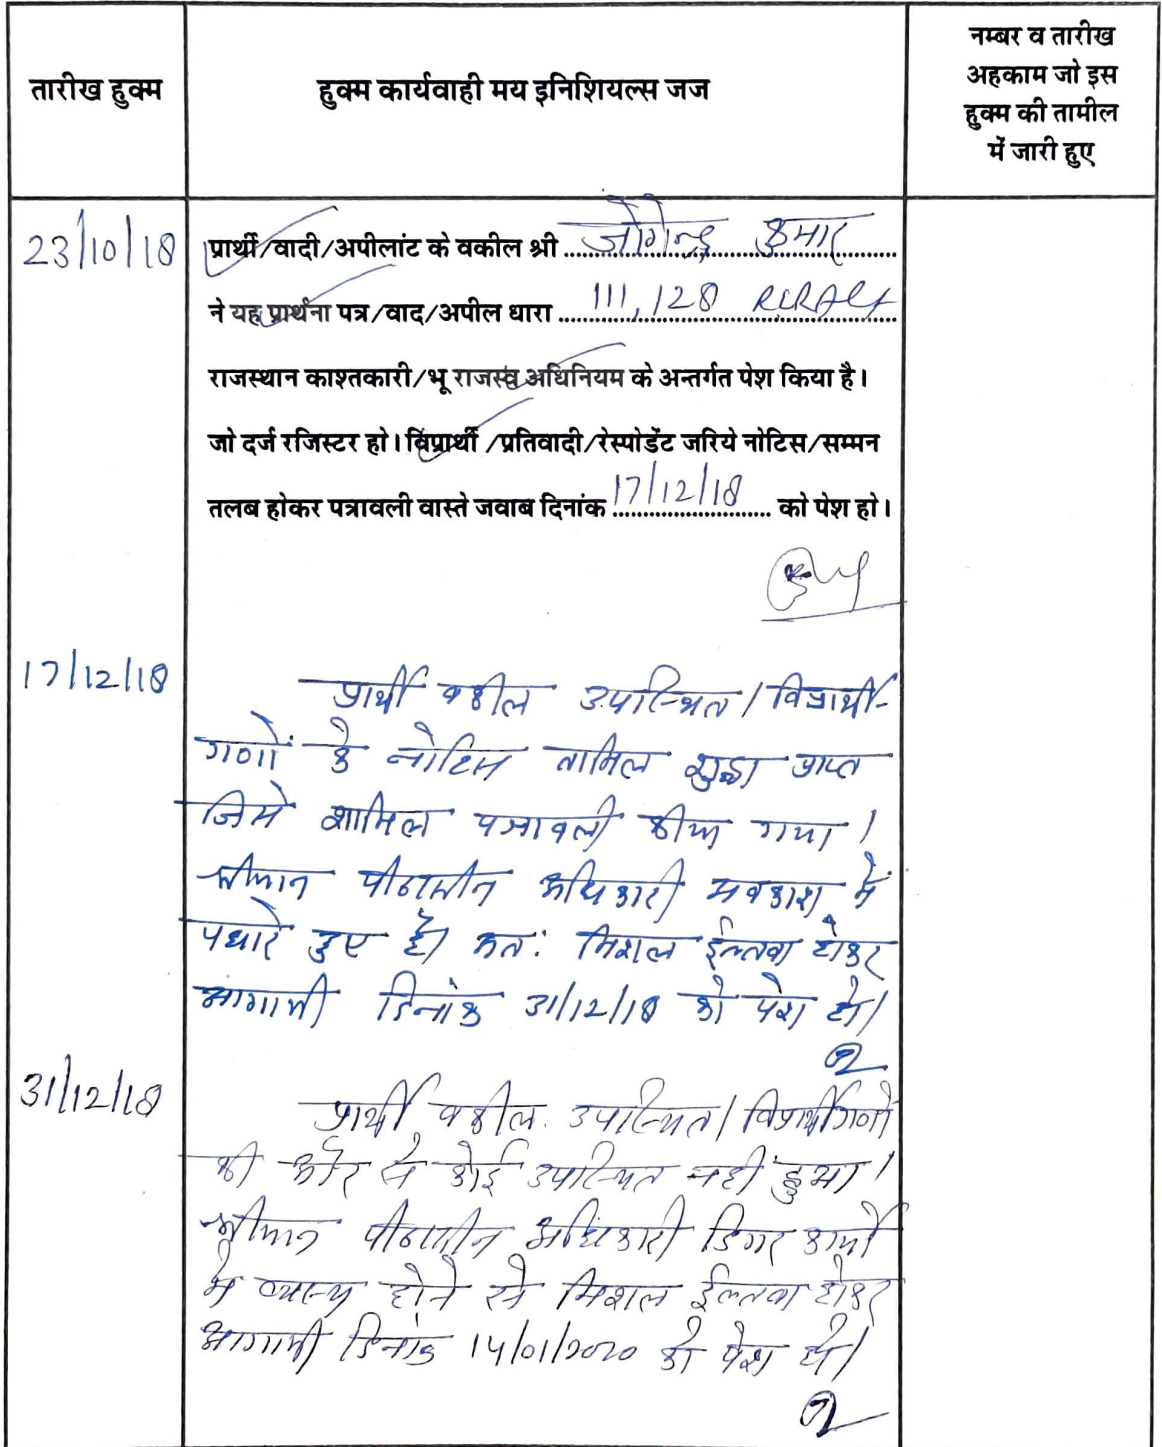 तारीख हुक्म
हुक्म कार्यवाही मय इनिशियल्स जज
नम्बर व तारीख
अहकाम जो इस
हुक्म की तामील
में जारी हुए
23/10/18
प्रार्थी/वादी/अपीलांट के वकील श्री जोगेन्द्र कुमार
ने यह प्रार्थना पत्र/वाद/अपील धारा 111, 128 RLRAct
राजस्थान काश्तकारी/भू राजस्व अधिनियम के अन्तर्गत पेश किया है।
जो दर्ज रजिस्टर हो। विप्रार्थी/प्रतिवादी/रेस्पोडेंट जरिये नोटिस/सम्मन
तलब होकर पत्रावली वास्ते जवाब दिनांक 17/12/18 को पेश हो।
17/12/18
प्रार्थी वकील उपस्थित। विप्रार्थी-
गणों के नोटिस तामिल शुद्धा प्राप्त
जिसे शामिल पत्रावली कीया गया।
श्रीमान पीठासीन अधिकारी अवकाश में
पधारे हुए है। अत: मिशल ईल्तवा होकर
आगामी दिनांक 31/12/18 को पेश हो।
31/12/18
प्रार्थी वकील उपस्थित। विप्रार्थीगणों
की और से कोई उपस्थित नहीं हुआ।
श्रीमान पीठासीन अधिकारी डिगर कार्यो
में व्यस्थ होने से मिशल ईल्तवा होकर
आगामी दिनांक 14/01/2020 को पेश हो।